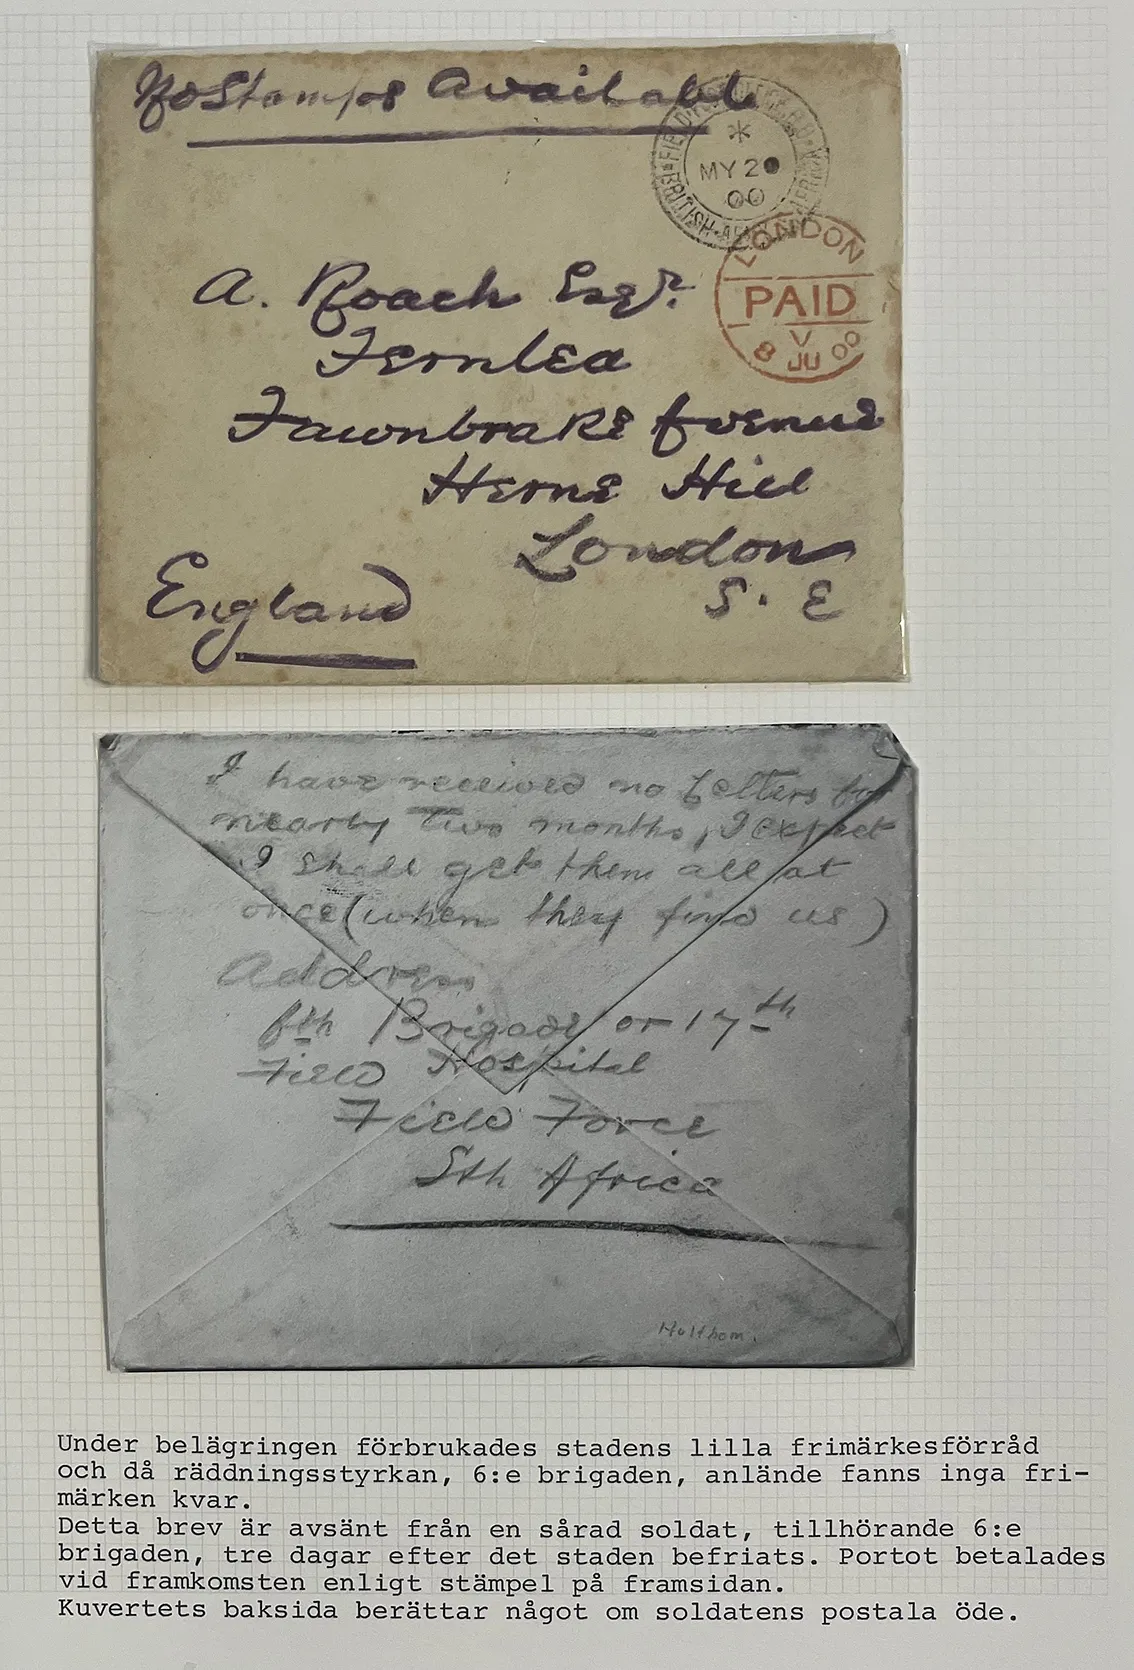 No Stamps Available
*
MY 20
00
BRITISH ARMY
LONDON
PAID
V
8 JU 00
A. Roach Esqr.
Fernlea
Fawnbrake Avenue
Herne Hill
London
S. E
England
I have received no Letters for
nearly two months, I expect
I shall get them all at
once (when they find us)
Address
6th Brigade or 17th
Field Hospital
Field Force
Sth Africa
Holthom.
Under belägringen förbrukades stadens lilla frimärkesförråd
och då räddningsstyrkan, 6:e brigaden, anlände fanns inga fri-
märken kvar.
Detta brev är avsänt från en sårad soldat, tillhörande 6:e
brigaden, tre dagar efter det staden befriats. Portot betalades
vid framkomsten enligt stämpel på framsidan.
Kuvertets baksida berättar något om soldatens postala öde.